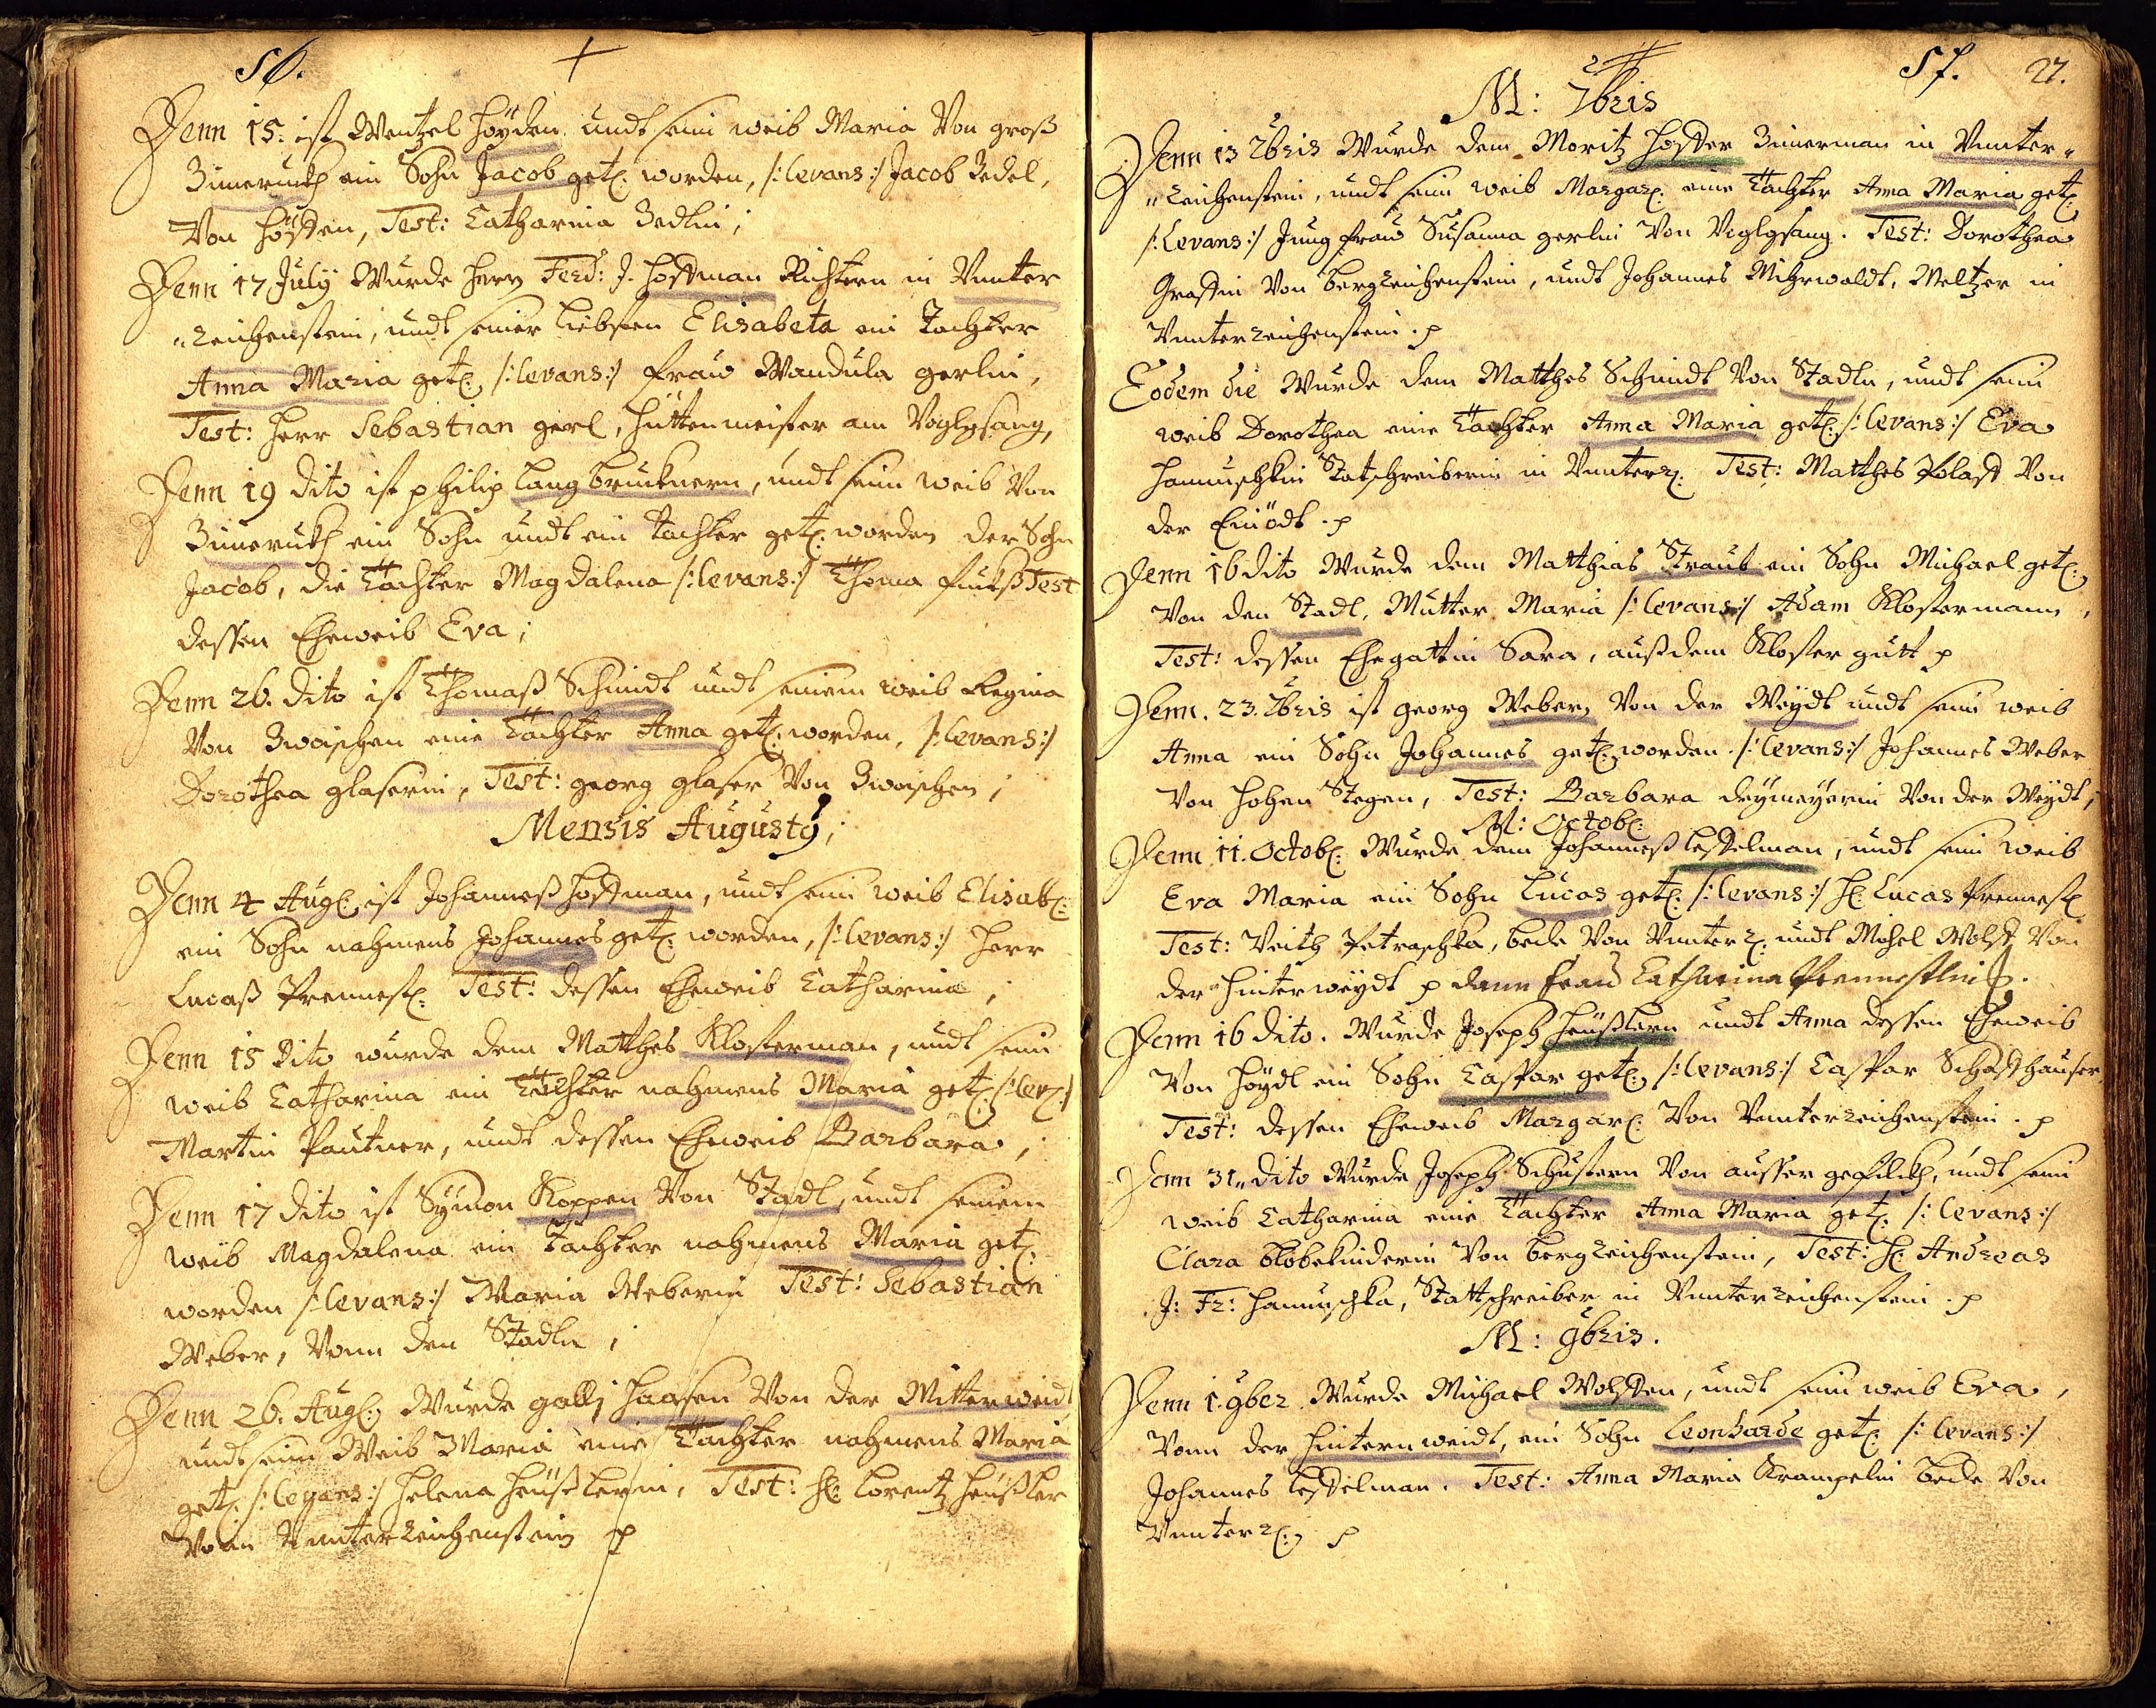 56.
Denn 15. ist Wentzel Höyden undt sein weib Maria Von groß
Zimeruckh ein Sohn Jacob get: worden, /:levans:/ Jacob Zedel,
Von Hösten, Test: Catharina Zedlin;
Denn 17 July Wurde Herrn Ferd: J. Hoffman Richtern in Vnnter
"reichenstein, undt seiner liebsten Elisabeta ein Tochter
Anna Maria get: /:levans:/ Fraw Wandula gerlin,
Test: Herr Sebastian gerl, Hüttenmeister am Voglgsang,
Denn 19 dito ist philip langbrucknern, undt sein weib Von
Zimeruckh ein Sohn undt ein Tochter get: worden der Sohn
Jacob, die Tochter Magdalena /:levans:/ Thoma Fuchß Test
dessen Eheweib Eva;
Denn 26. dito ist Thomaß Schmidt undt seinem weib Regina
Von Zwoischen eine Tochter Anna get: worden, /:levans:/
Dorothea glaserin, Test: georg glaser Von Zwoischen;
Mensis Augusty;
Denn 4 Aug: ist Johanneß Hoffman, undt sein weib Elisab:
ein Sohn nahmens Johannes get: worden, /:levans:/ Herr
Lucaß Prennest: Test: dessen Eheweib Catharina;
Denn 15 Dito wurde dem Matthes Klosterman, undt sein
weib Catharina ein Tochter nahmens Maria get: /:lev:/
Martin Pautner, undt dessen Eheweib Barbara;
Denn 17 dito ist Symon Koppen Von Stadl, undt seinem
weib Magdalena ein Tochter nahmens Maria get:
worden /:levans:/ Maria Weberin Test: Sebastian
Weber, Vonn den Stadln;
Denn 26. Aug: Wurde gallj Haasen Von der Mitterweidt
undt sein Weib Maria eine Tochter nahmens Maria
get: /:levans:/ Helena Heüßlerin, Test: H: Lorentz Heüßler
Vonn Vnnterreichenstein p
57. 27.
M: 7bris
Denn 13 7bris Wurde dem Moritz Hoffer Zimerman in Vnnter"
"reichenstein, undt sein weib Margar: eine Tochter Anna Maria get:
/:Levans:/ Jungfraw Susanna gerlin Von Voglgsang. Test: Dorothea
Grassin Von bergreichenstein, undt Johannes Mihrwaldt, Meltzer in
Vnnterreichenstein. p
Eodem die Wurde dem Matthes Schmidt Von Stadln, undt sein
weib Dorothea eine Tochter Anna Maria get: /:levans:/ Eva
Hanuschkin Statschreiberin in Vnnterr: Test: Matthes Polast Von
der Einödt. p
Denn 16 dito Wurde dem Matthias Straub ein Sohn Michael get:,
Von den Stadl, Mutter Maria /:levans:/ Adam Klostermann,
Test: dessen Ehegattin Sara, auß dem Kloster gutt p
Denn. 23. 7bris ist georg Webern Von der Weydt undt sein weib
Anna ein Sohn Johannes get: worden. /:levans:/ Johannes Weber
Von Hohen Stegen, Test: Barbara Drymeyerin Von der Weydt,
M: Octob:
Denn 11. Octob: Wurde dem Johanneß lesselman, undt sein weib
Eva Maria ein Sohn Lucas get: /:levans:/ H: Lucas Prennest:
Test: Veith Petraschka, bede Von Vnnterr: undt Michel Wolf Von
der Hinterweydt p dann Fraw Catharina Prennestlin.
Denn 16 dito. Wurde Joseph Heüßlern undt Anna dessen Eheweib
Von Höydl ein Sohn Caspar get:, /:levans:/ Caspar Schaffhauser,
Test: dessen Eheweib Margar: Von Vnnterreichenstein. p
Denn 31. dito Wurde Joseph Schustern Von ausser gefildt, undt sein
weib Catharina eine Tochter Anna Maria get: /:levans:/
Clara blobekinderin Von bergreichenstein, Test: H: Andreas
J: Fr: Hanuschka, Stattschreiber in Vnnterreichenstein. p
M: 9bris.
Denn 1. 9ber Wurde Michael Wolffen, undt sein weib Eva,
Vonn der Hinternweidt, ein Sohn Leonharde get: /:levans:/
Johannes lesselman. Test: Anna Maria Krampelin bede Von
Vnnterr:, p